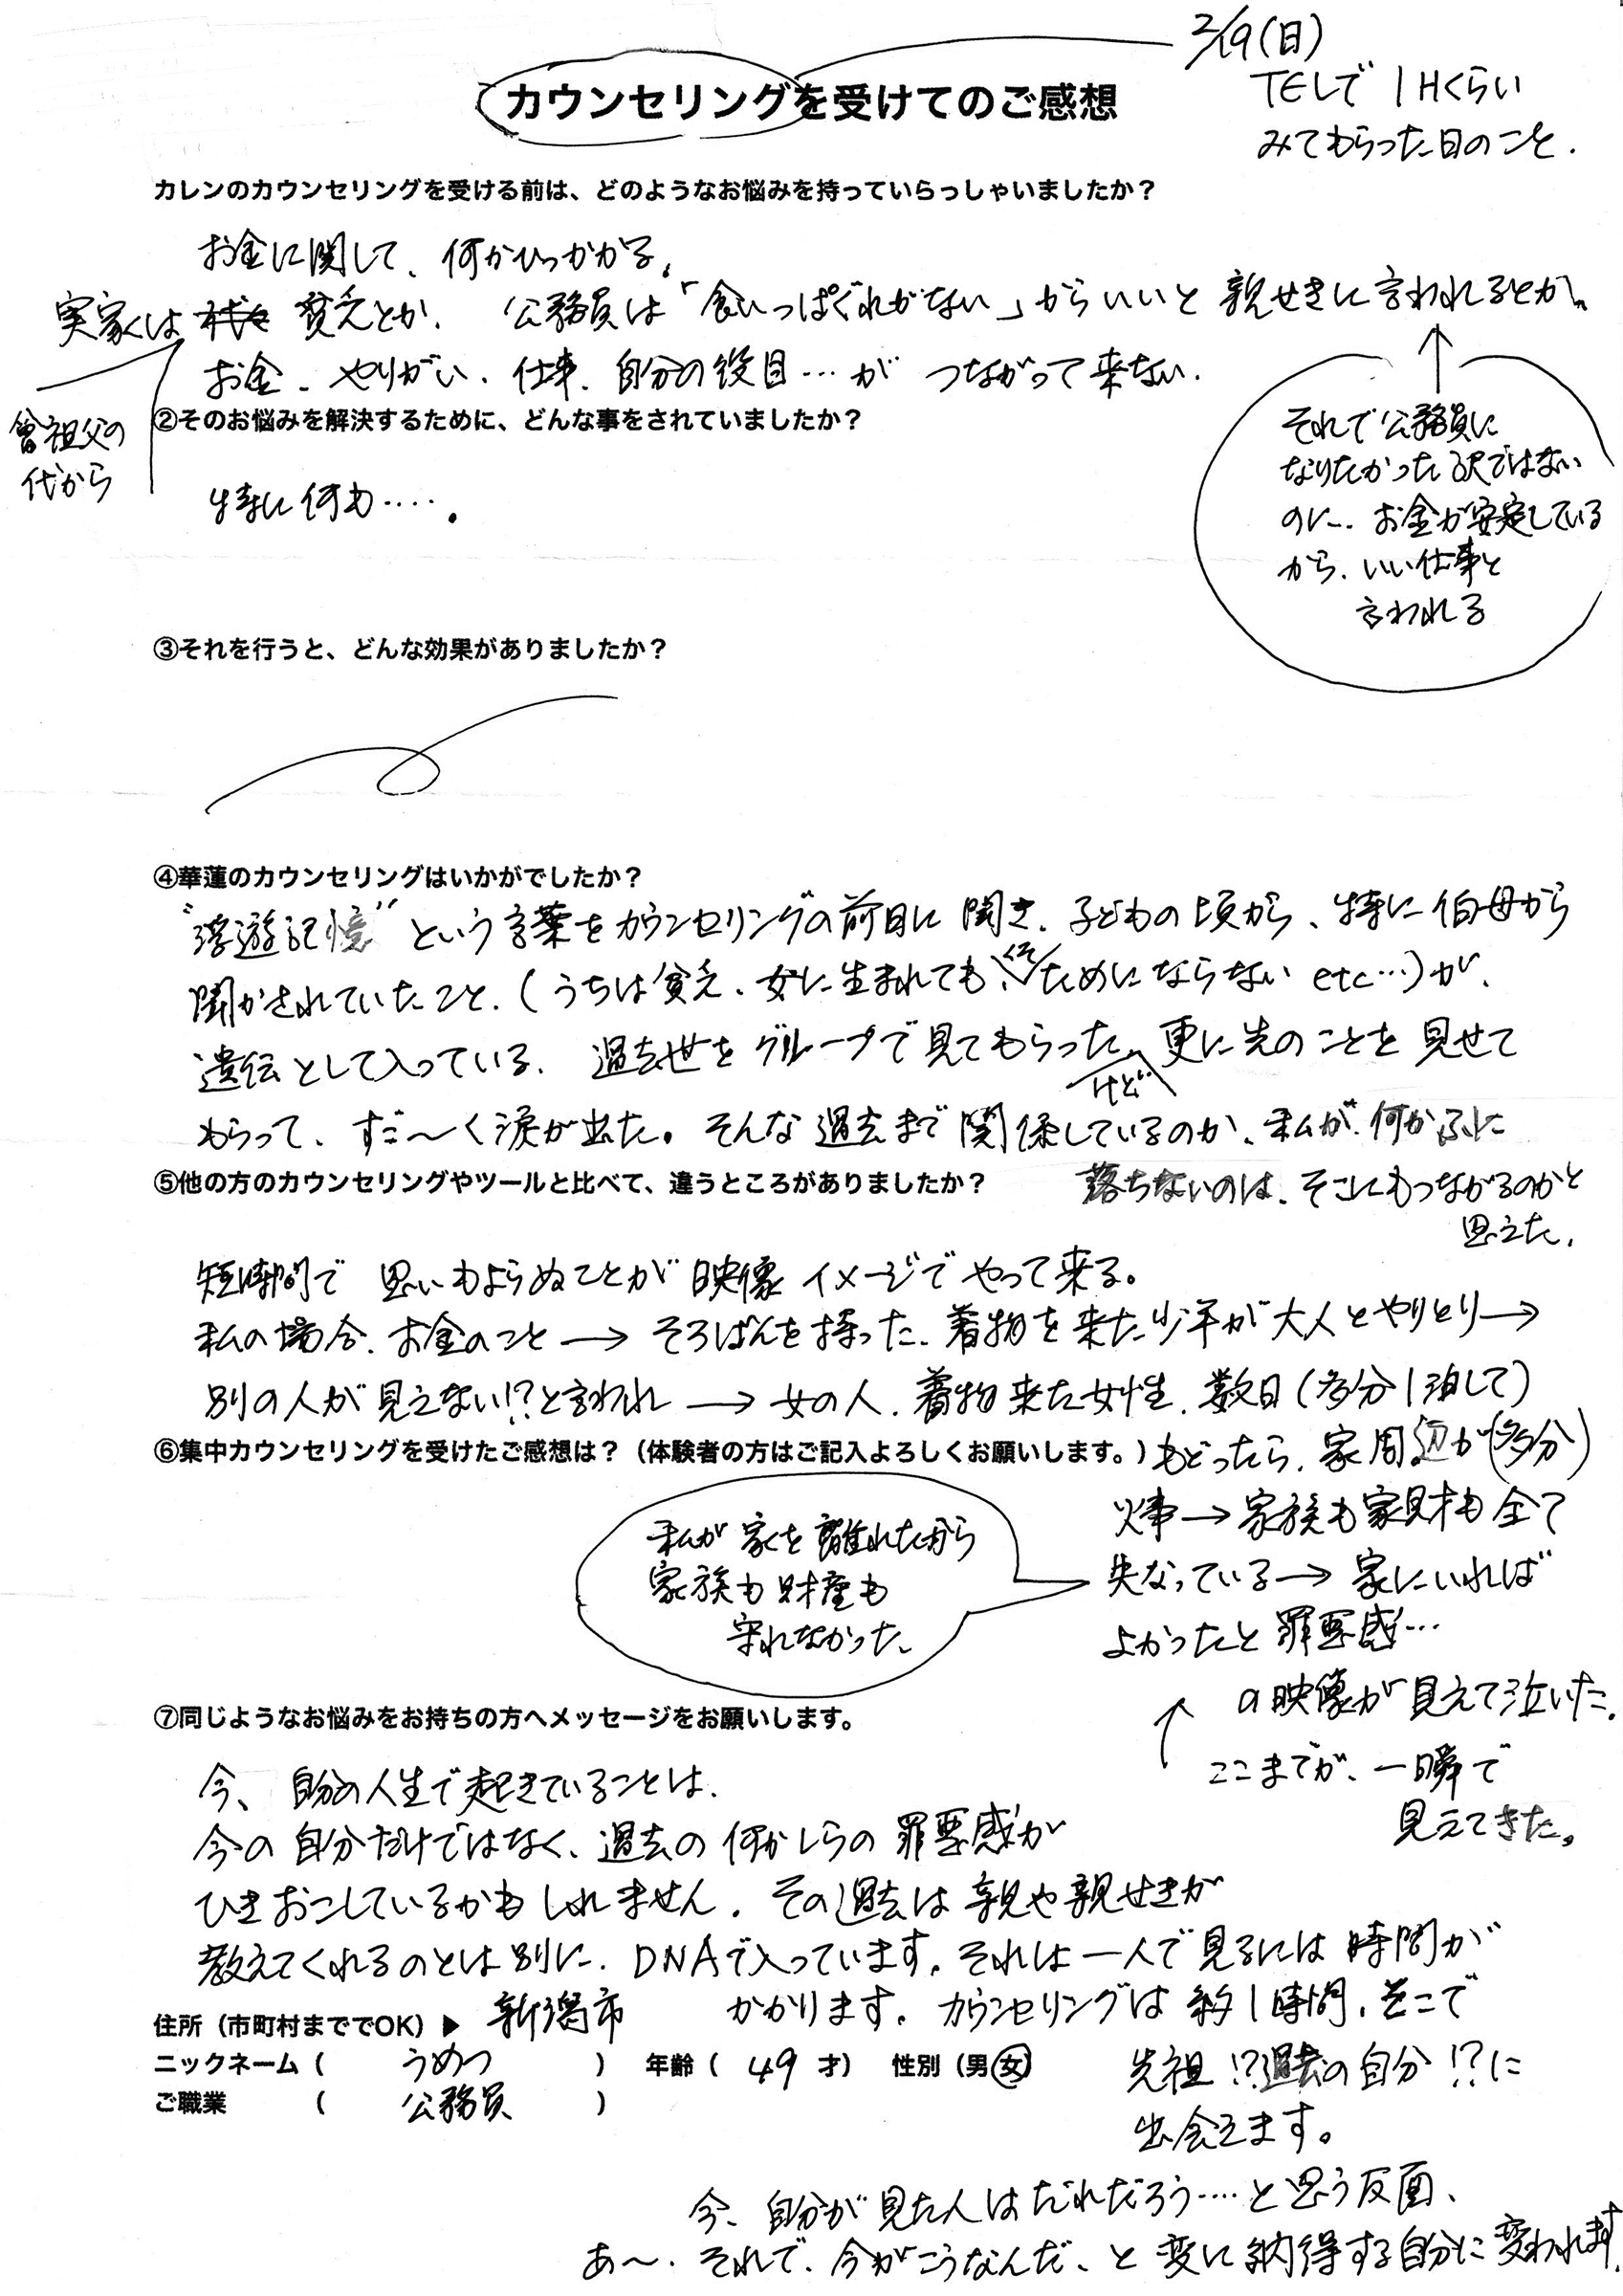 2/19(日)
TELで 1Hくらい
みてもらった日のこと.
カウンセリングを受けてのご感想
カレンのカウンセリングを受ける前は、どのようなお悩みを持っていらっしゃいましたか？
お金に関して、何かひっかかる。
実家は 貧乏とか、公務員は「食いっぱぐれがない」からいいと 親せきに言われるとか。
お金、やりがい、仕事、自分の役目…が つながって来ない.
曾祖父の
代から
それで公務員に
なりたかった訳ではない
のに.. お金が安定している
から、いい仕事と
言われる
②そのお悩みを解決するために、どんな事をされていましたか？
特に何も‥‥.
③それを行うと、どんな効果がありましたか？
④華蓮のカウンセリングはいかがでしたか？
“浮遊記憶”という言葉をカウンセリングの前日に聞き、子どもの頃から、特に伯母から
聞かされていたこと、(うちは貧乏、女に生まれても、ためにならない etc…)が、
遺伝として入っている. 過去世をグループで見てもらったけど、更に先のことを見せて
もらって、すご～く涙が出た。そんな過去まで関係しているのか、私が、何かふに
落ちないのは、そこにもつながるのかと
思えた.
⑤他の方のカウンセリングやツールと比べて、違うところがありましたか？
短時間で 思いもよらぬことが映像 イメージで やって来る。
私の場合、お金のこと → そろばんを持った、着物を来た少年が大人とやりとり→
別の人が見えない!?と言われ → 女の人、着物来た女性、数日(多分1泊して)
もどったら、家周辺が(多分)
火事→家族も家財も全て
失なっている→ 家にいれば
よかったと罪悪感…
の映像が見えて泣いた.
↑ ここまでが、一瞬で
見えてきた。
⑥集中カウンセリングを受けたご感想は？（体験者の方はご記入よろしくお願いします。）
私が家を離れたから
家族も財産も
守れなかった、
⑦同じようなお悩みをお持ちの方へメッセージをお願いします。
今、自分の人生で起きていることは、
今の自分だけではなく、過去の何かしらの罪悪感が
ひきおこしているかもしれません. その過去は親や親せきが
教えてくれるのとは別に、DNAで入っています。それは一人で見るには時間が
かかります。カウンセリングは約1時間、そこで
先祖!?過去の自分!?に
出会えます。
今、自分が見た人はだれだろう‥‥と思う反面、
あ～、それで、今がこうなんだ、と変に納得する自分に変われます.
住所（市町村まででOK）▶ 新潟市
ニックネーム（ うめつ ） 年齢（ 49 才） 性別（男 女）
ご職業 （ 公務員 ）